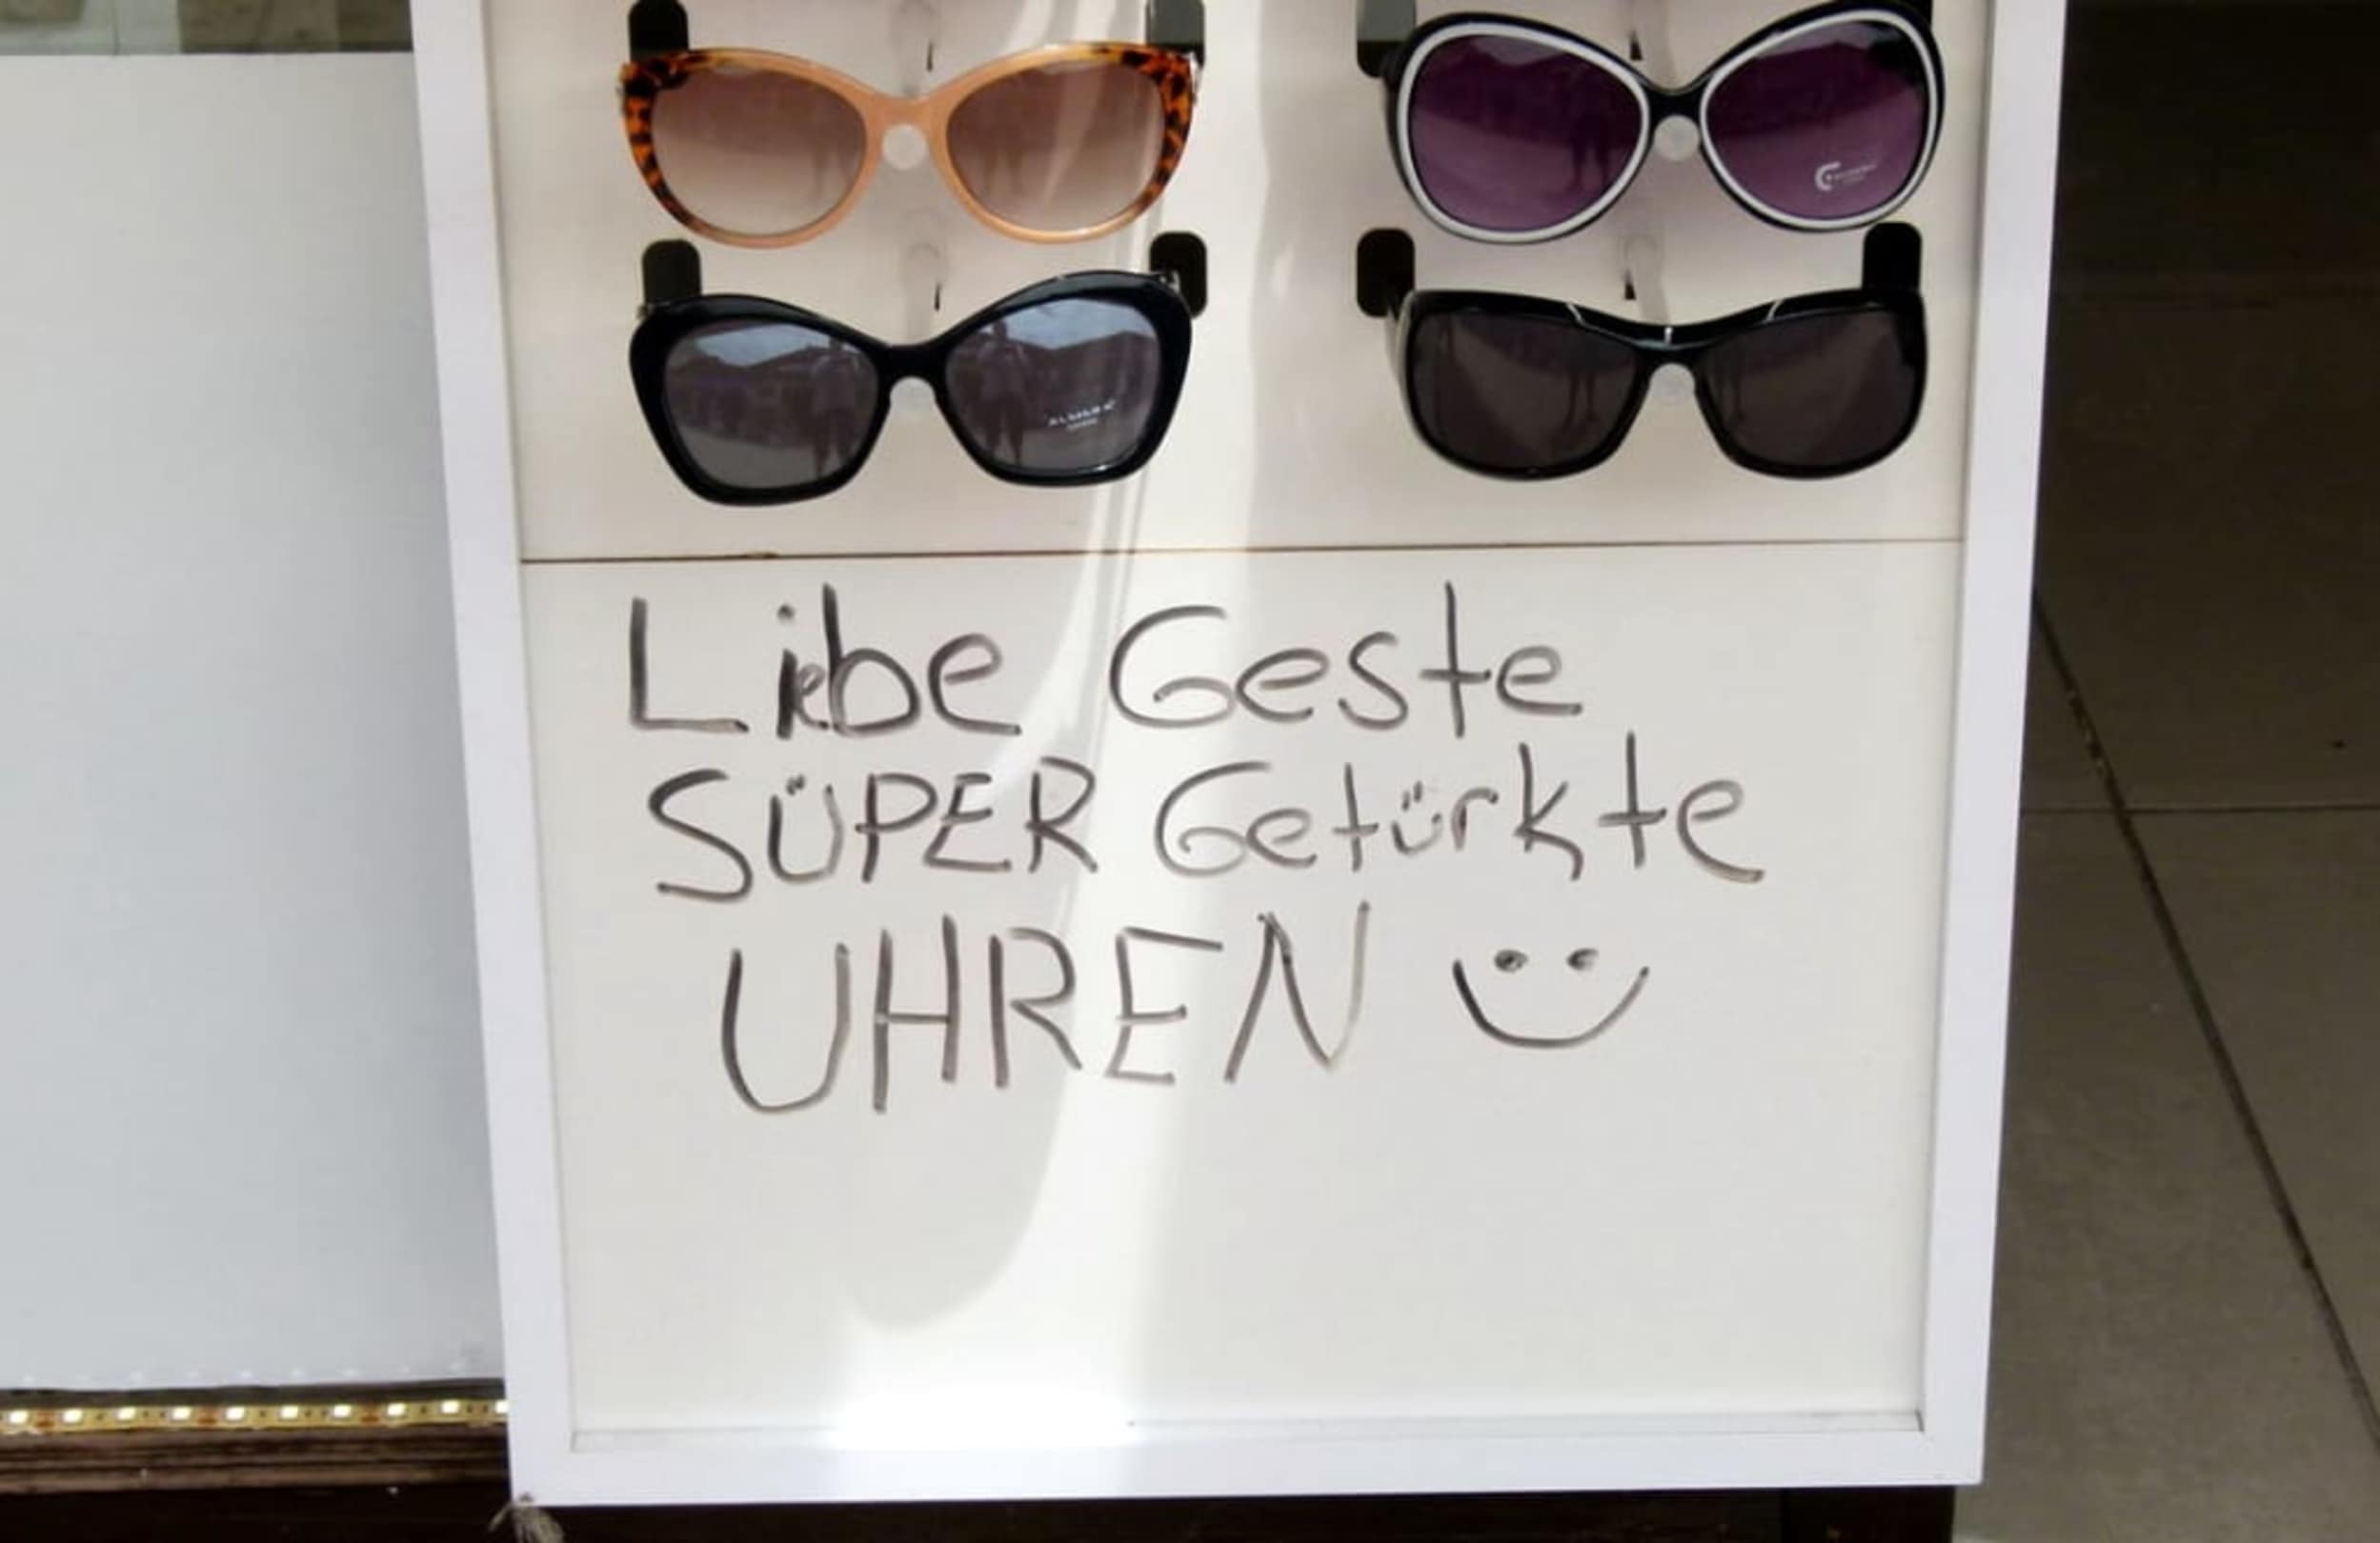 Liebe Geste
SÜPER Getürkte
UHREN